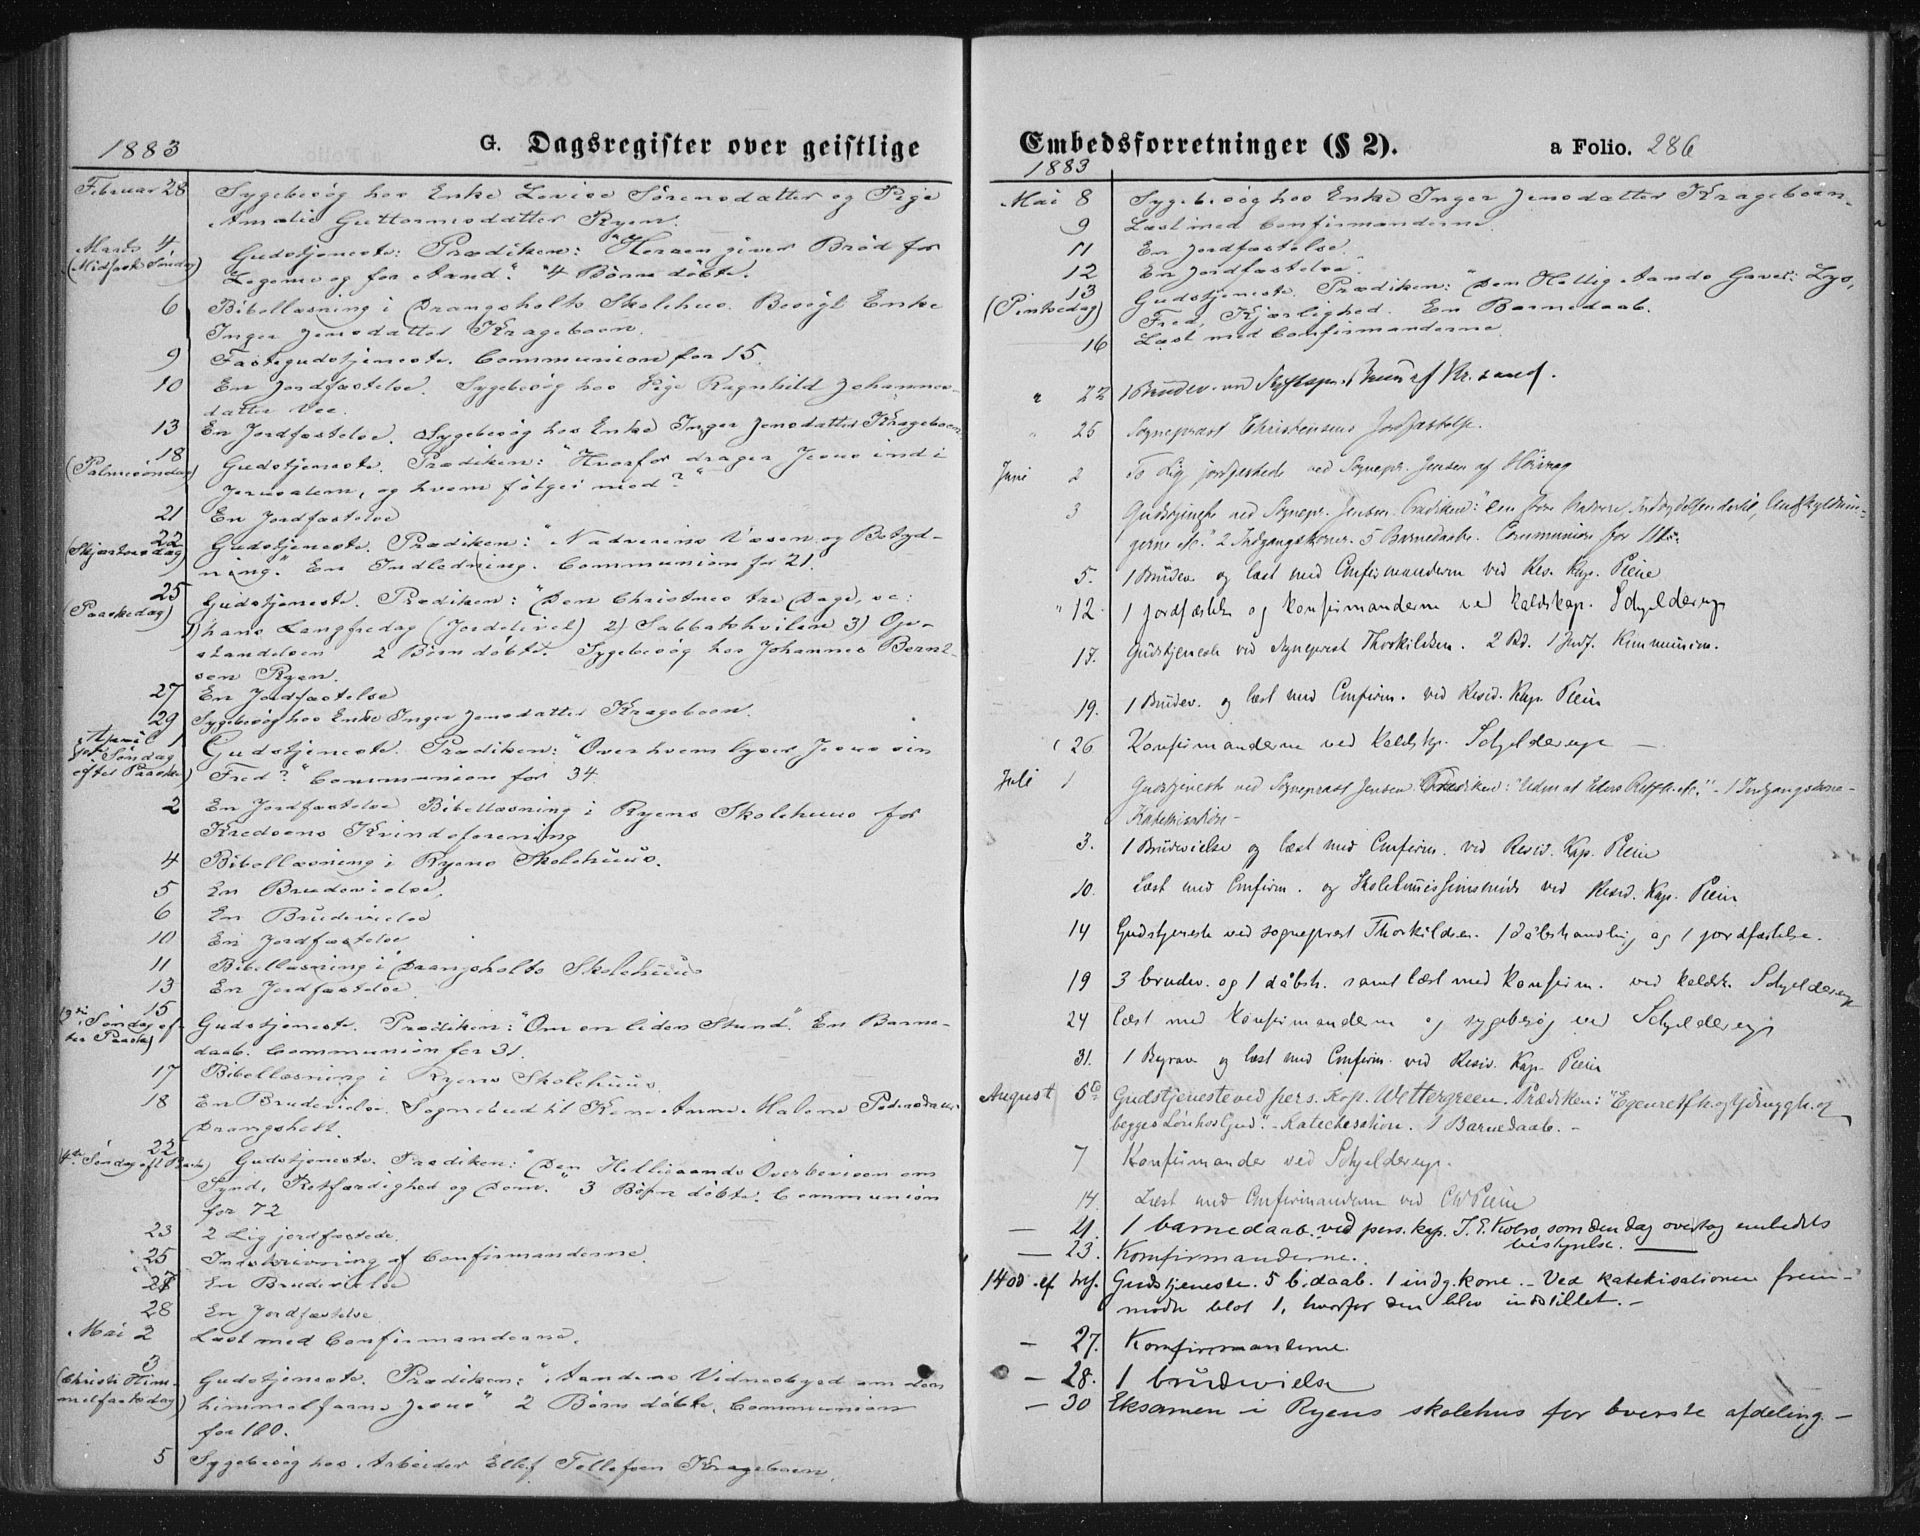 1883 G. Dagsregister over geistlige
Februar 28 Sygebesøg hos Enke Lovise Sörensdatter og Pige
Amalie Guttormsdatter Ryen.
Marts 4 Gudstjeneste. Prædiken: "Herren giver Brød for
(Midfaste Søndag) Legeme og for Aand." 4 Børn døbte.
6 Bibellæsning i Drangsholts Skolehus. Besögt Enke
Inger Jensdatter Krageboen.
9 Fastegudstjeneste. Communion for 15.
10 En Jordfæstelse. Sygebesøg hos Pige Ragnhild Johannes-
datter Vee.
13 En Jordfæstelse. Sygebesög hos Enke Inger Jensdatter Krageboen
18 Gudstjeneste. Prædiken: "Hvorfor drager Jesus ind i
(Palmesöndag) Jerusalem, og hvem følger med?"
21 En Jordfæstelse
22 Gudstjeneste. Prædiken: "Nadverens Væsen og Betyd-
(Skjærtorsdag) ning." En Indledning. Communion for 21.
25 Gudstjeneste. Prædiken: "Den Christnes tre Dage, se:
(Paaskedag) 1) hans Langfredag (Jordelivet) 2) Sabbatshvilen 3) Op-
standelsen 2 Børn döbte. Sygebesög hos Johannes Bernt-
sen Ryen.
27 En Jordfæstelse
29 Sygebesøg hos Enke Inger Jensdatter Krageboen.
April 1 Gudstjeneste. Prædiken: "Over hvem lyser Jesus sin
Søndag
efter Paaske) Fred?" Communion for 34.
2 En Jordfæstelse Bibellæsning i Ryens Skolehuus for
Kredsens Kvindeforening
4 Bibellæsning i Ryens Skolehuus.
5 En Brudevielse.
6 En Brudevielse
10 En Jordfæstelse
11 Bibellæsning i Drangsholts Skolehuus
13 En Jordfæstelse
15 Gudstjeneste. Prædiken: "Om en liden Stund." En Barne-
Søndag ef-
ter Paaske) daab. Communion for 31.
17 Bibellæsning i Ryens Skolehuus.
18 En Brudevielse. Sognebud til Kone Anne Malene Pedersdatter
Drangsholt.
22 Gudstjeneste. Prædiken: "Den Helligaands Overbevisen om
4de Søndag eft. Paaske) Synd, Retfærdighed og Dom." 3 Børn døbte. Communion
for 72
23 2 Lig jordfæstede.
25 Indskrivning af Confirmanderne.
27 En Brudevielse
28 En Jordfæstelse
Mai 2 Læst med Confirmanderne.
3 Gudstjeneste. Prædiken: "Aandens Vidnesbyrd om den
(Christi Him-
melfartsdag) himmelfarne Jesus" 2 Börn döbte. Communion
for 100.
5 Sygebesög hos Arbeider Ellef Tellefsen Krageboen.
Embedsforretninger (§ 2). a Folio. 286
1883
Mai 8 Sygebesög hos Enke Inger Jensdatter Krageboen.
9 Læst med Confirmanderne.
11 En Jordfæstelse.
12 En Jordfæstelse.
13 Gudstjeneste. Prædiken: "Den Hellig Aands Gaver: Lys,
(Pintsedag) Fred, Kjærlighed. En Barnedaab.
16 Læst med Confirmanderne
" 22 1 Brudev. ved Stiftspr. Bruun af Kr.sand.
" 25 Sogneprest Christensens Jordfæstelse.
Juni 2 To Lig jordfæstede ved Sognepr. Jensen af Høivaag
3 Gudstjeneste ved Sognepr. Jensen. Prædiken: "Den store Nadvere, Indbydelsen dertil, Undskyldnin-
gerne etc." 2 Indgangskoner. 5 Barnedaabe. Communion for 11.
5. 1 Brudev. og læst med Confirmanderne ved Res. Kap. Pleiu
" 12. 1 jordfæstelse og konfirmanderne ved kaldskap. Schjelderup
17. Gudstjeneste ved Sogneprest Thorkildsen. 2 Bd. 1 Jordf. Kommunion.
19. 1 Brudev. og læst med Confirm. ved Resid. Kap. Pleiu
" 26. Konfirmanderne ved kaldskp. Schjelderup —
Juli 1 Gudstjeneste ved Sogneprest Jensen. Prædiken: "Uden at Eders Retf. etc." - 1 Indgangskone -
Katekisation -
3. 1 Brudevielse og læst med Confirm. ved Resid. Kap. Pleiu
10. Læst med Confirm. og Skolekommissionsmøde ved Resid. Kap. Pleiu
14 Gudstjeneste ved sogneprest Thorkildsen. 1 dåbshandling og 1 jordfæstelse.
19 3 brudev. og 1 dåbsh. samt læst med konfirm. ved kaldsk. Schjelderup
24 læst med konfirmanderne og sygebesøg ved Schjelderup
31. 1 Begrav. og læst med Confirm. ved Resid. Kap. Pleiu
August 5te Gudstjeneste ved pers. Kap. Wettergreen. Prædiken: "Egenretf.h. og
begges Løn hos Gud." - Katechesation. 1 Barnedaab. -
7 Konfirmander ved Schjelderup.
14. Læst med Confirmanderne ved
— 21. 1 barnedaab. ved pers. kap. J. E. Kobro, som den dag overtog embedets
bestyrelse.
— 23. Konfirmanderne.
14 ød. ef. tref. Gudstjeneste. 5 b. daab. 1 indg. kone. - Ved katekisationen frem-
mødte blot 1, hvorfor den blev indstillet. -
- 27. Konfirmanderne.
- 28. 1 brudevielse
- 30 Eksamen i Ryens skolehus for øverste afdeling -